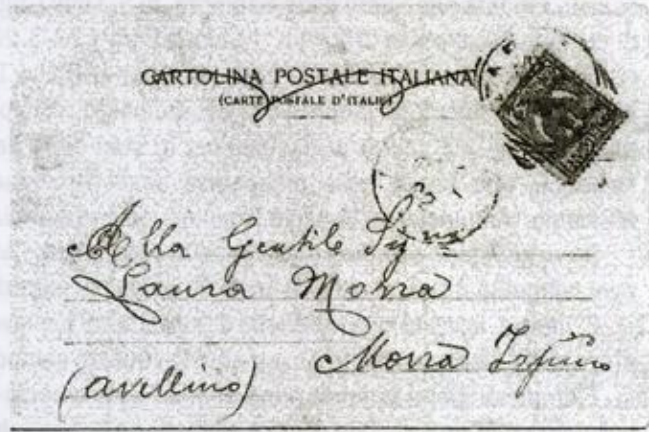 CARTOLINA POSTALE ITALIANA
(CARTE POSTALE D'ITALIE)
Alla Gentile Sigra
Laura Morra
Morra Irpino
(avellino)